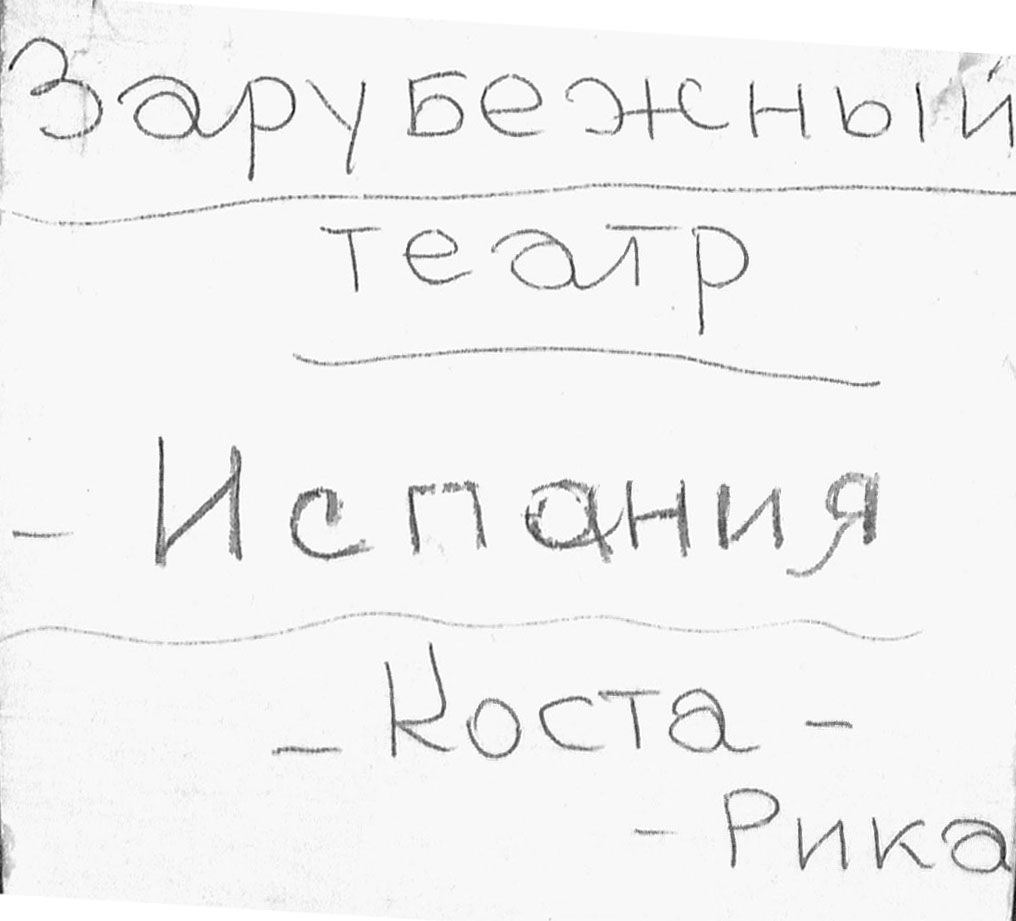 Зарубежный
театр
- Испания
- Коста -
- Рика